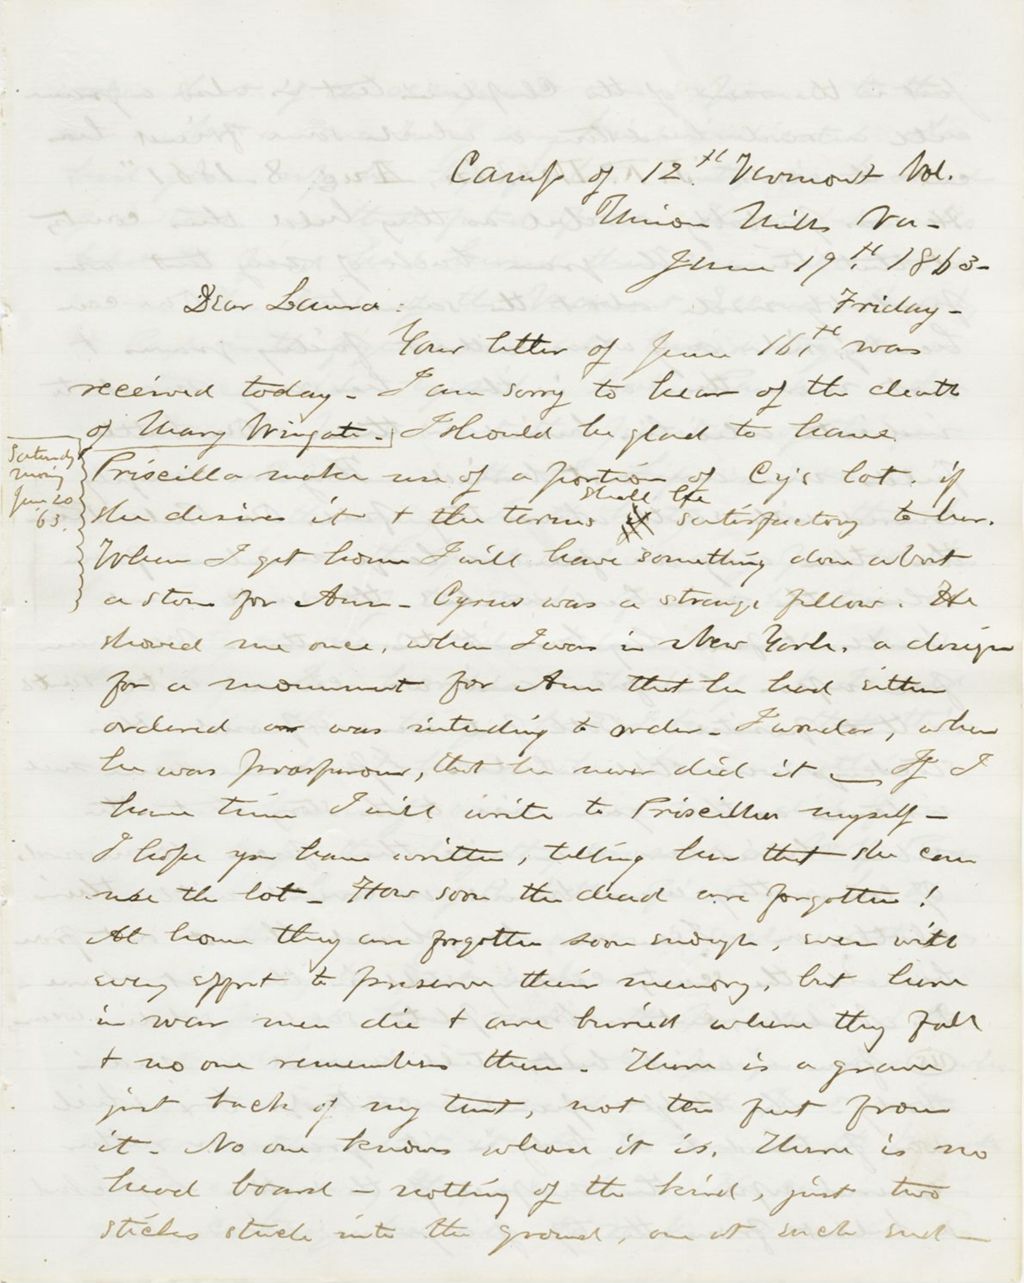 Camp of 12th Vermont Vol.
Union Mills Va -
June 19th 1863 -
Dear Laura : Friday -
Your letter of June 16th was
received today - I am sorry to hear of the death
of Mary Wingate - I should be glad to have
Priscilla make use of a portion of Cy's lot, if
she desires it & the terms shall be satisfactory to her.
When I get home I will have something done about
a stone for Ann - Cyrus was a strange fellow. He
showed me once, when I was in New York, a design
for a monument for Ann that he had either
ordered or was intending to order - I wonder, when
he was prosperous, that he never did it - If I
have time I will write to Priscilla myself -
I hope you have written, telling her that she can
use the lot - How soon the dead are forgotten !
At home they are forgotten soon enough, even with
every effort to preserve their memory, but here
in war men die & are buried where they fall
& no one remembers them - There is a grave
just back of my tent, not ten feet from
it - No one knows whose it is. There is no
head board - nothing of the kind, just two
sticks stuck into the ground, one at each end -
Saturday
morning
June 20
'63.